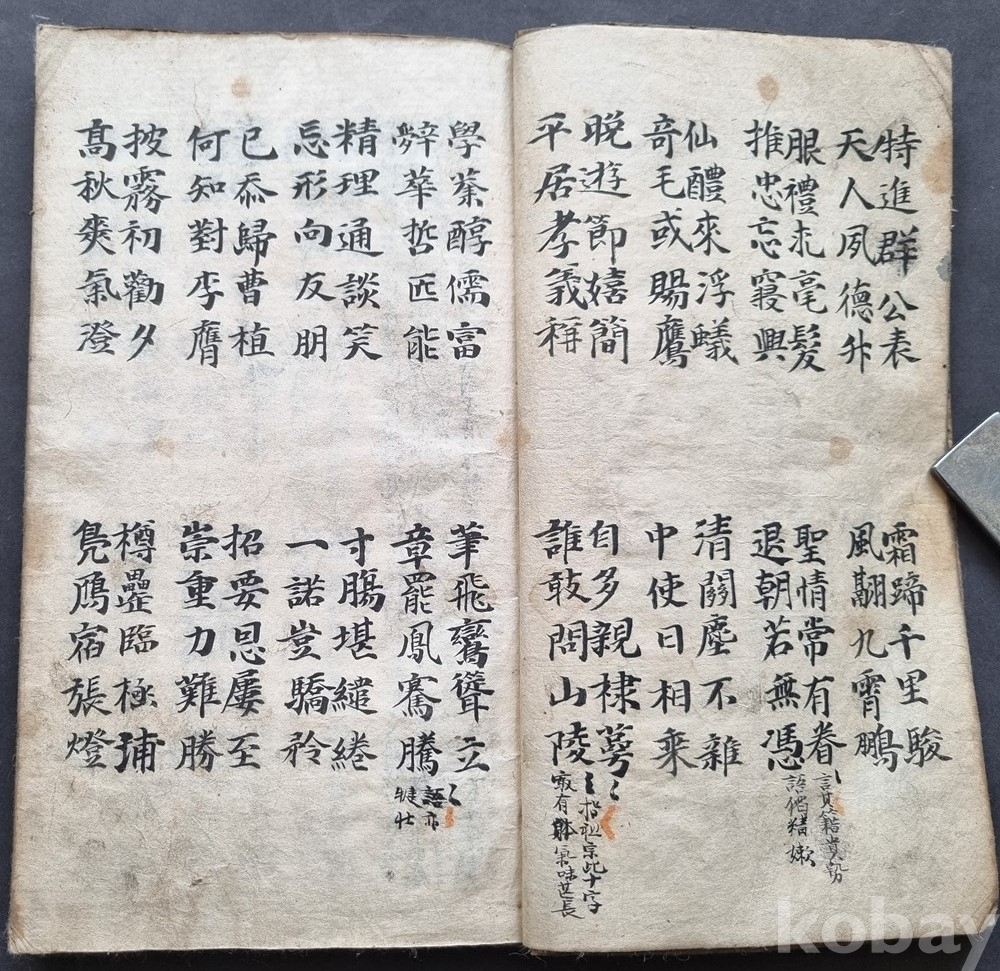 特進群公表
天人夙德升
霜蹄千里駿
風翮九霄鵬
服禮求毫髮
推忠忘寢興
聖情常有眷
退朝若無憑
言其籍貴勢
仙醴來浮蟻
奇毛或賜鷹
清關塵不雜
中使日相乘
晚遊節嬉簡
平居孝義稱
自多親棣萼
誰敢問山陵
指祖宗此十字
最有氣味甚長
學業醇儒富
辭華哲匠能
筆飛鸞聳立
章罷鳳騫騰
語亦
健壯
精理通談笑
忘形向友朋
寸腸堪繾綣
一諾豈驕矜
已忝歸曹植
何知對李膺
招要恩屢至
崇重力難勝
披霧初勸夕
高秋爽氣澄
樽罍臨極浦
鳧鴈宿張燈
kobay